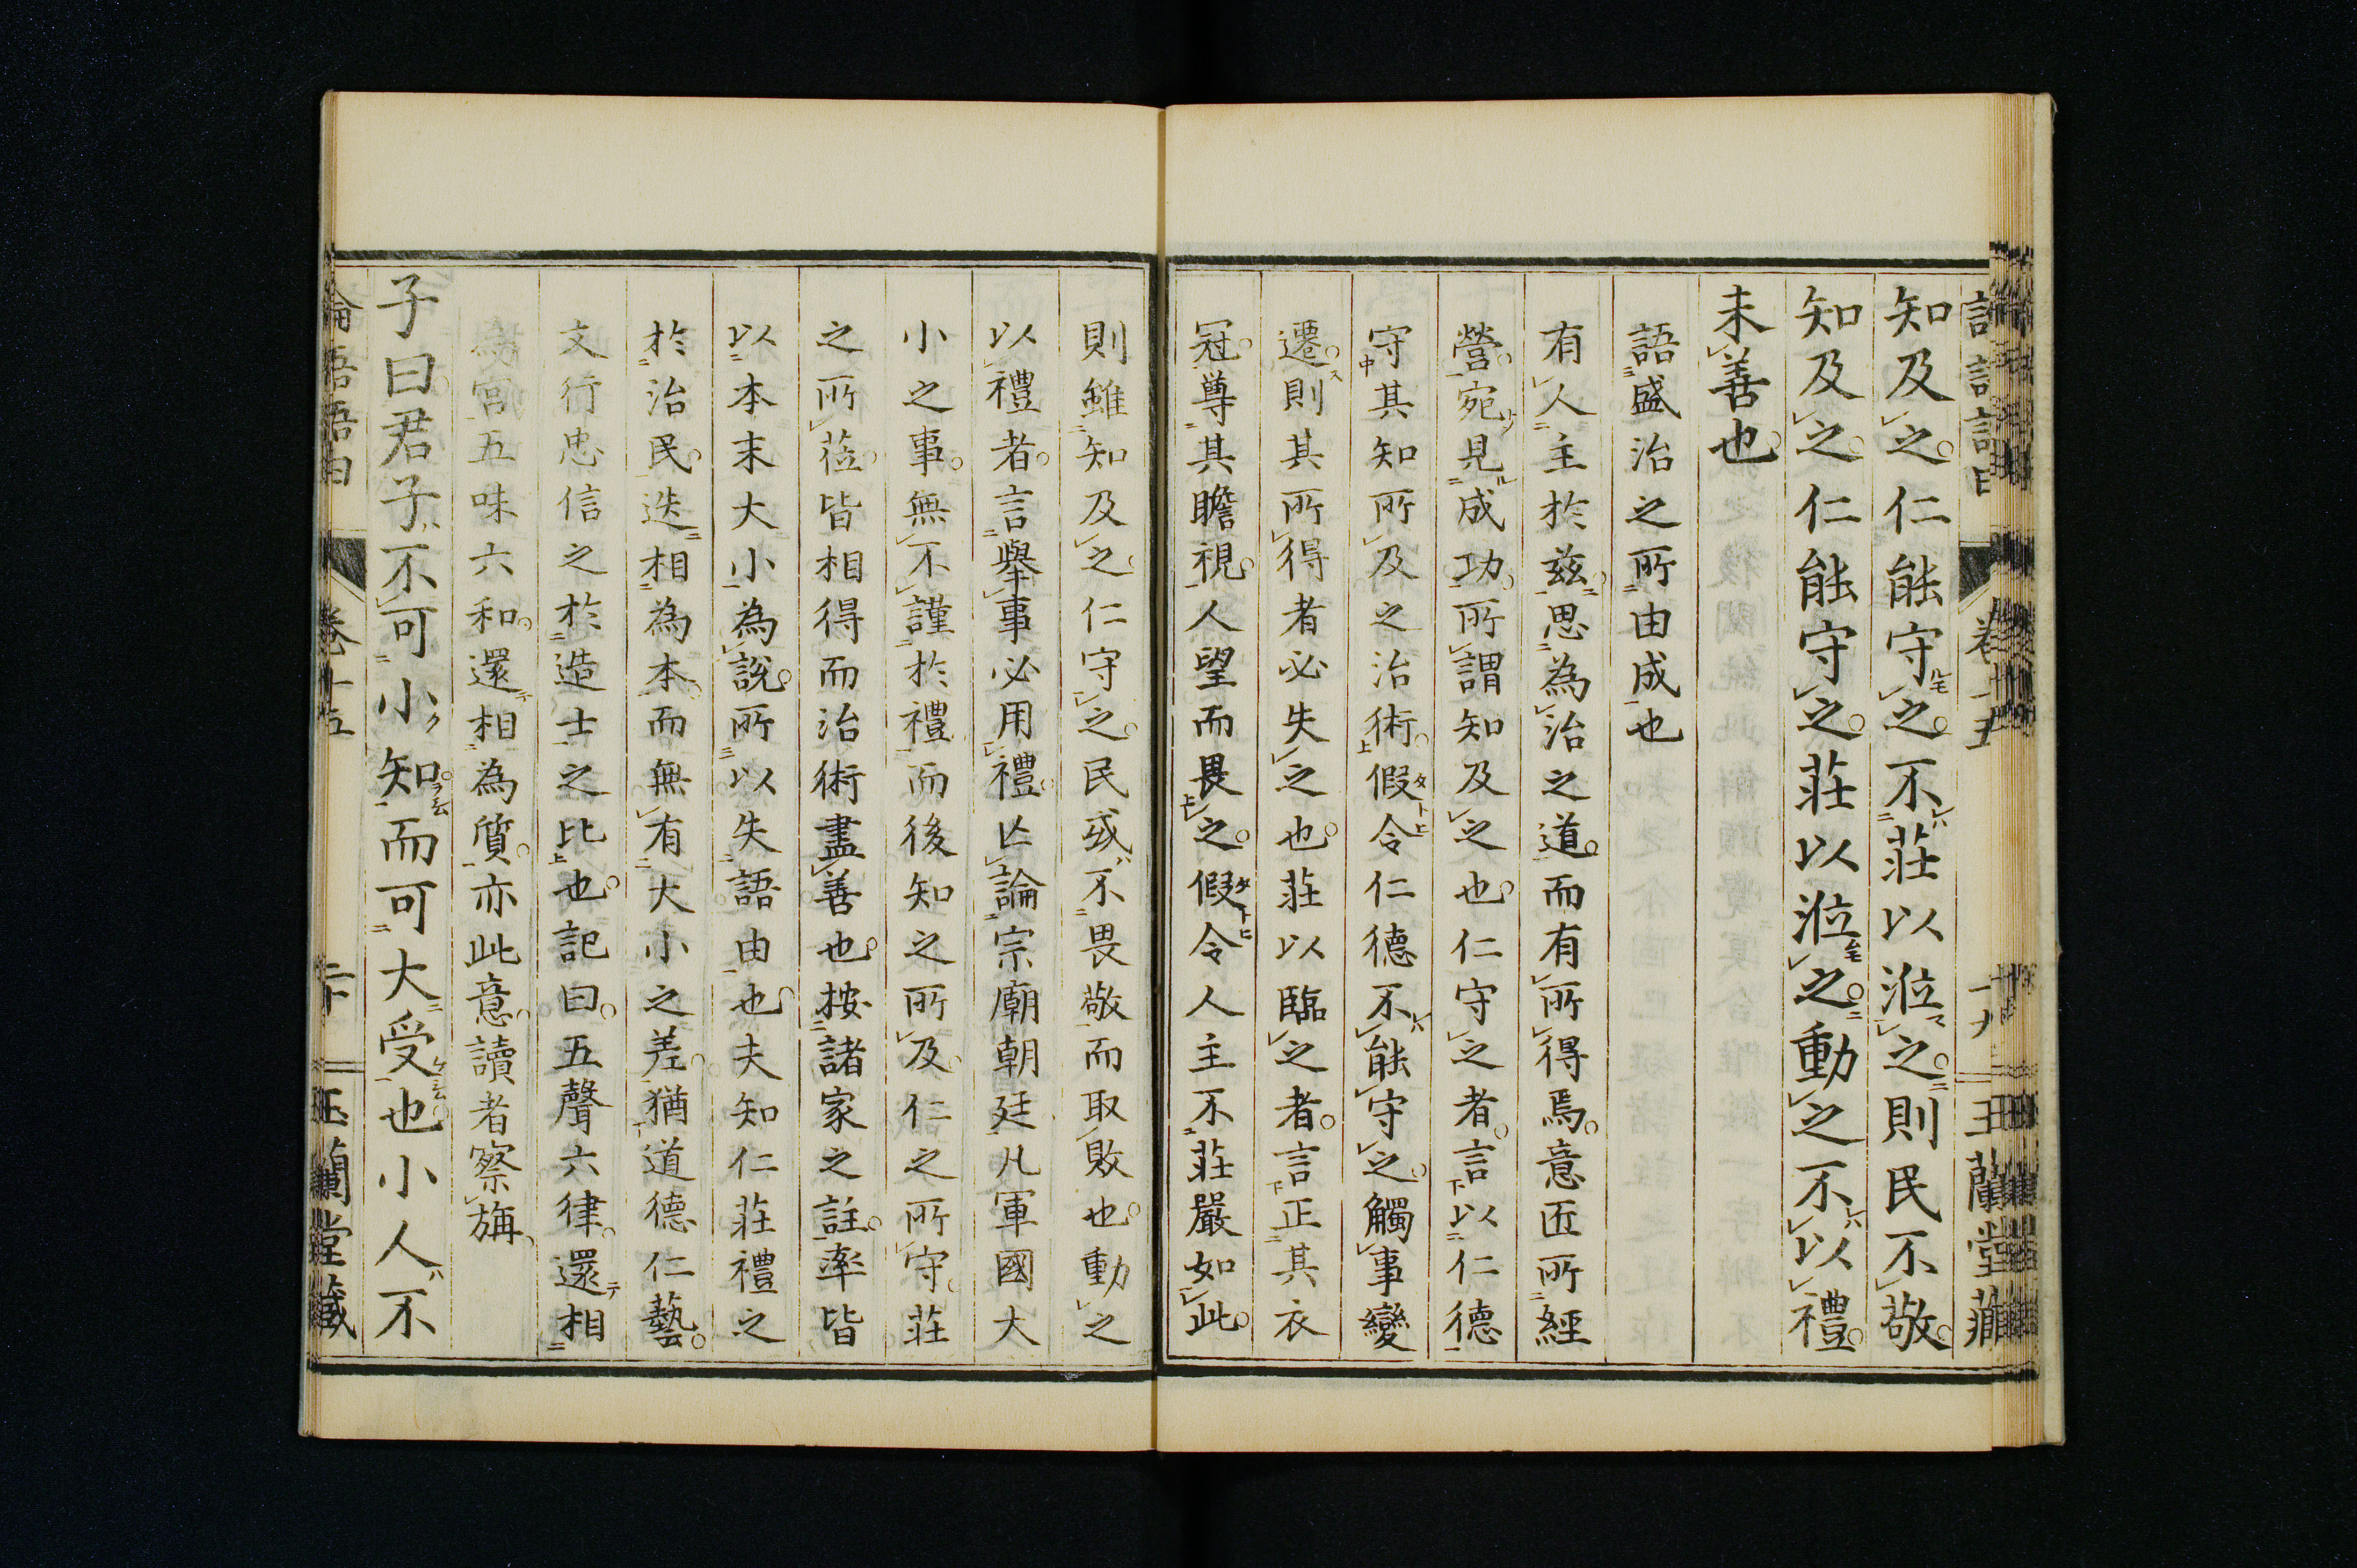 知及之仁能守之不莊以涖之則民不敬
知及之仁能守之莊以涖之動之不以禮
未善也
語盛治之所由成也
有人主於茲思為治之道而有所得焉意匠所經
營宛見成功所謂知及之也仁守之者言以仁德
守其知所及之治術假令仁德不能守之觸事變
遷則其所得者必失之也莊以臨之者言正其衣
冠尊其瞻視人望而畏之假令人主不莊嚴如此
則雖知及之仁守之民或不畏敬而取敗也動之
以禮者言擧事必用禮亾論宗廟朝廷凡軍國大
小之事無不謹於禮而後知之所及仁之所守莊
之所莅皆相得而治術盡善也按諸家之註率皆
以本末大小為說所以失語由也夫知仁莊禮之
於治民迭相為本而無有大小之差猶道德仁藝
文行忠信之於造士之比也記曰五聲六律還相
為宮五味六和還相為質亦此意讀者察旃
子曰君子不可小知而可大受也小人不
卷十五
玉蘭堂藏